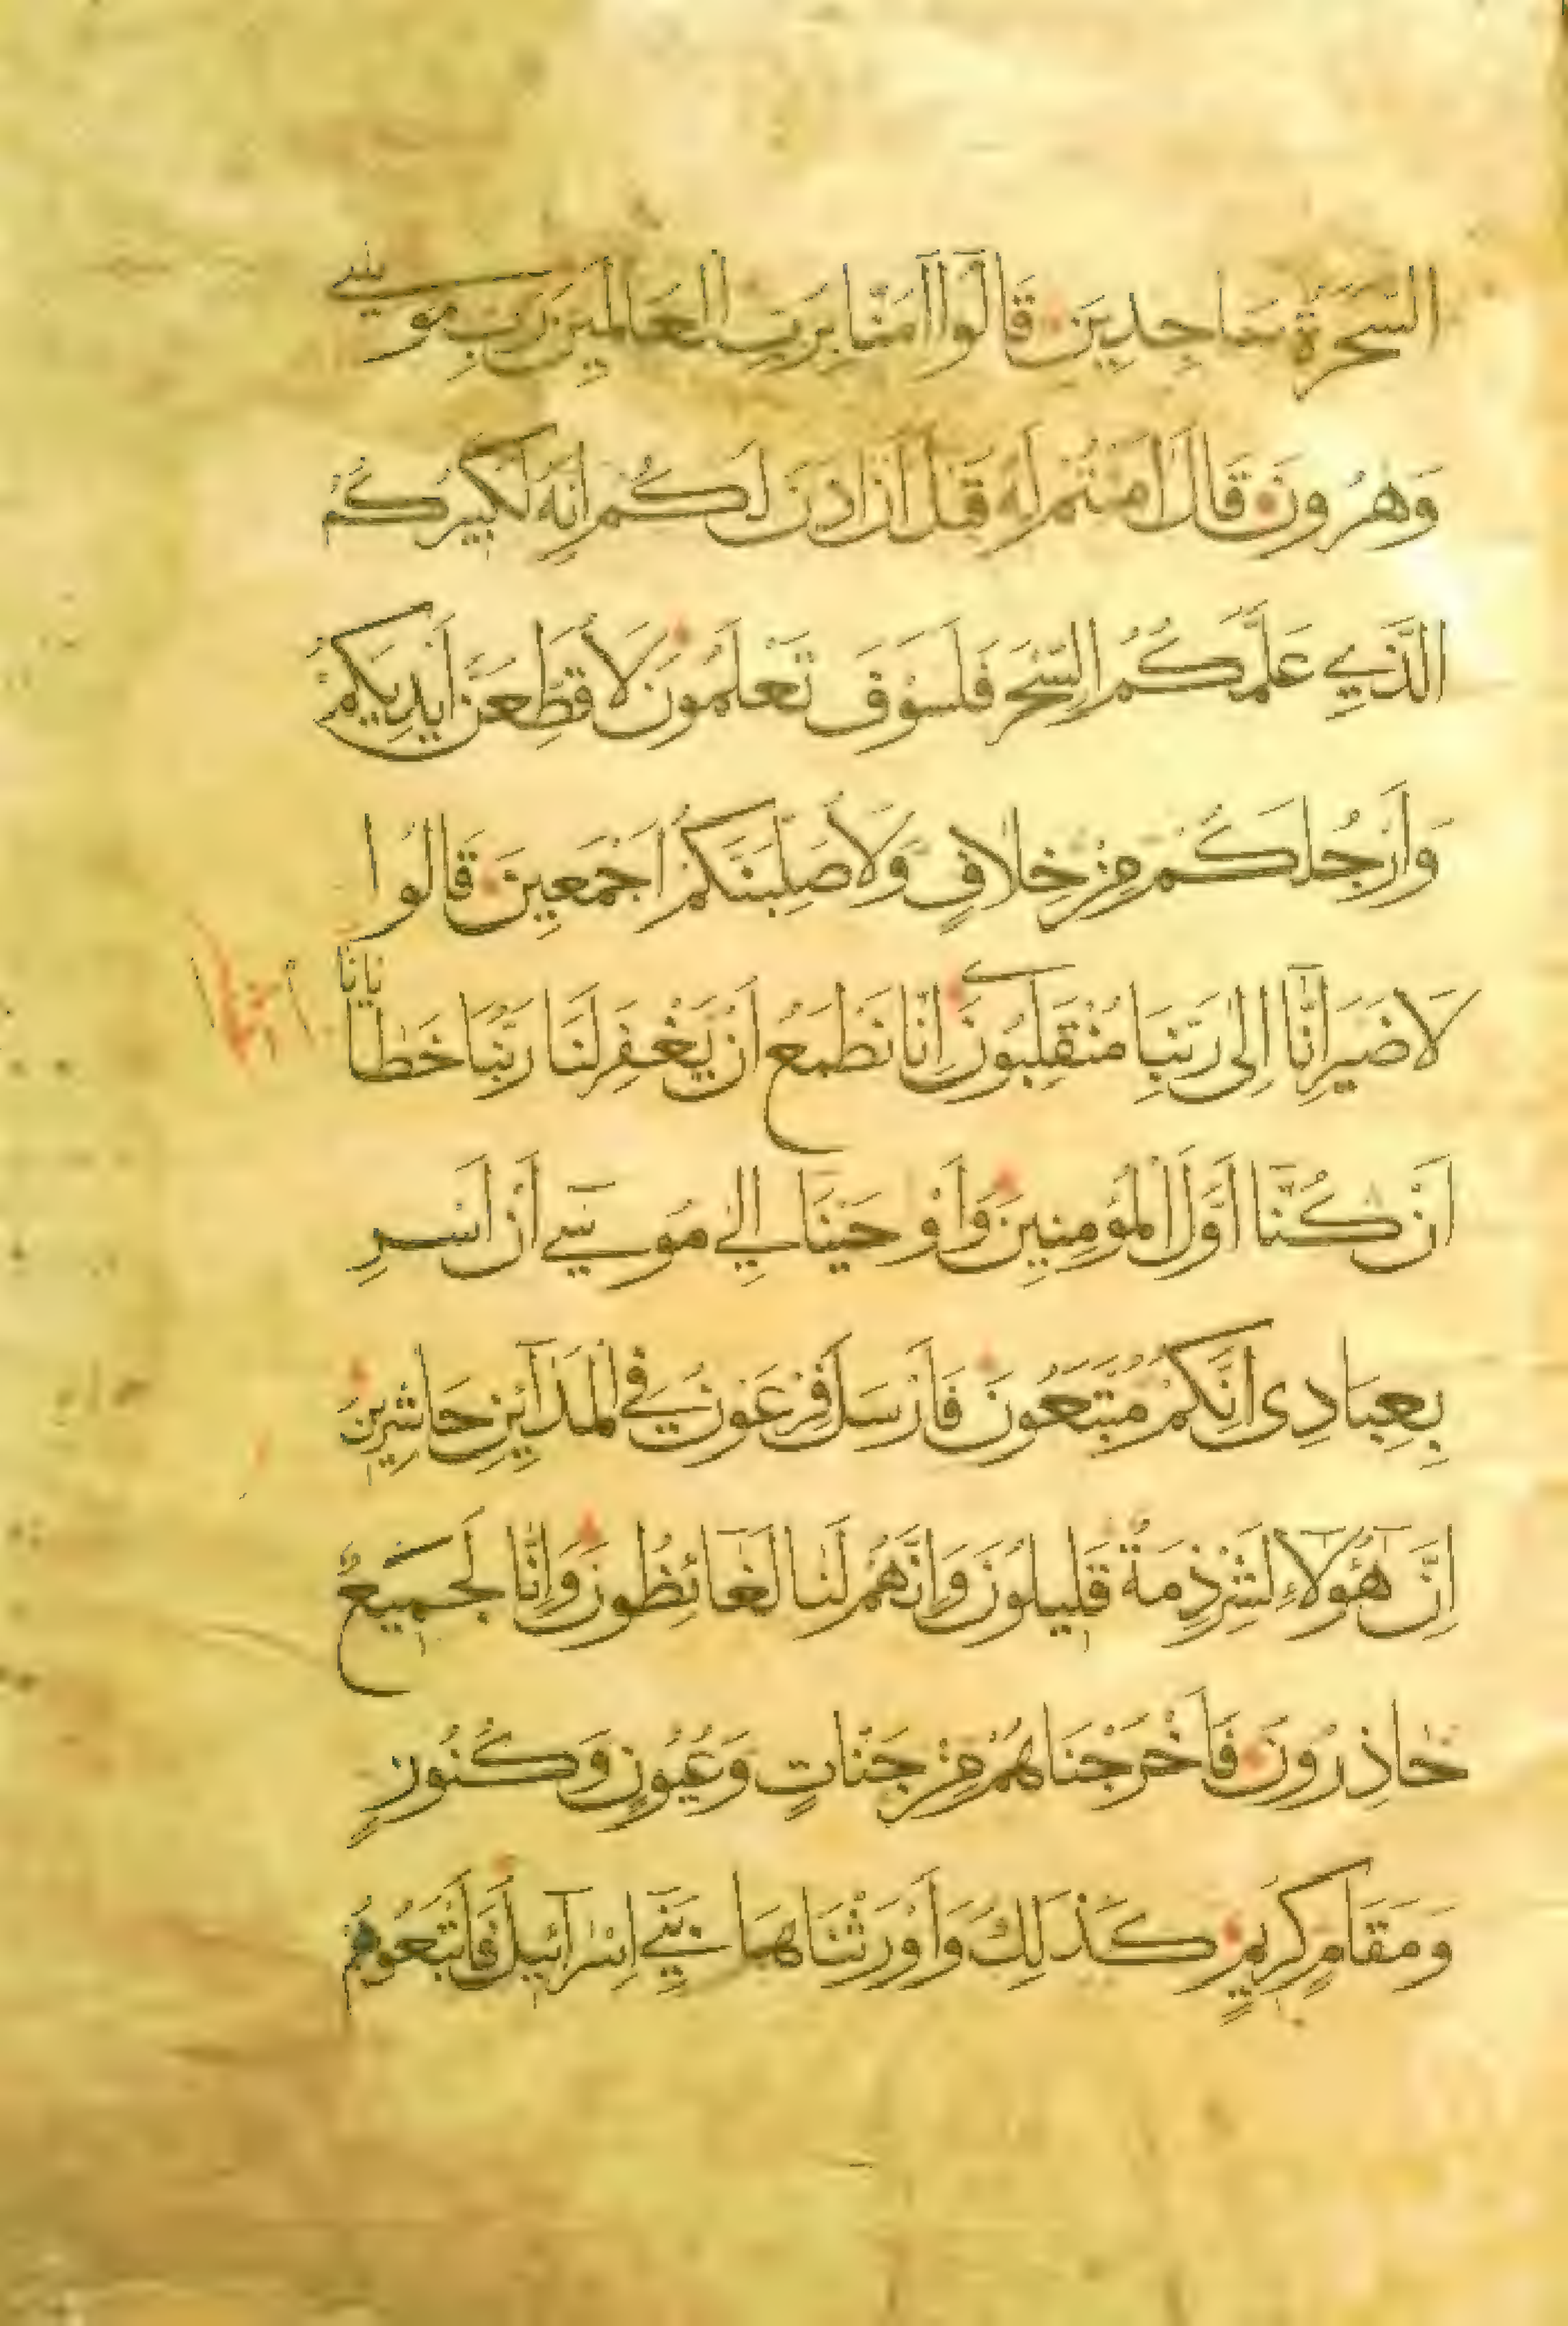 السَّحَرَةُ سَاجِدِينَ قَالُوا اٰمَنَّا بِرَبِّ الْعَالَمِينَ رَبِّ مُوسٰى
وَهٰرُونَ قَالَ اٰمَنْتُمْ لَهُ قَبْلَ اَنْ اٰذَنَ لَكُمْ اِنَّهُ لَكَبِيرُكُمُ
الَّذِي عَلَّمَكُمُ السِّحْرَ فَلَسَوْفَ تَعْلَمُونَ لَاُقَطِّعَنَّ اَيْدِيَكُمْ
وَاَرْجُلَكُمْ مِنْ خِلَافٍ وَلَاُصَلِّبَنَّكُمْ اَجْمَعِينَ قَالُوا
لَا ضَيْرَ اِنَّا اِلٰى رَبِّنَا مُنْقَلِبُونَ اِنَّا نَطْمَعُ اَنْ يَغْفِرَ لَنَا رَبُّنَا خَطَايَانَا
اَنْ كُنَّا اَوَّلَ الْمُؤْمِنِينَ وَاَوْحَيْنَا اِلٰي مُوسٰي اَنْ اَسْرِ
بِعِبَادِى اِنَّكُمْ مُتَّبَعُونَ فَاَرْسَلَ فِرْعَوْنُ فِي الْمَدَآئِنِ حَاشِرِينَ
اِنَّ هٰٓؤُلَآءِ لَشِرْذِمَةٌ قَلِيلُونَ وَاِنَّهُمْ لَنَا لَغَائِظُونَ وَاِنَّا لَجَمِيعٌ
حَاذِرُونَ فَاَخْرَجْنَاهُمْ مِنْ جَنَّاتٍ وَعُيُونٍ وَكُنُوزٍ
وَمَقَامٍ كَرِيمٍ كَذٰلِكَ وَاَوْرَثْنَاهَا بَنِيٓ اِسْرَآئِيلَ فَاَتْبَعُوهُمْ